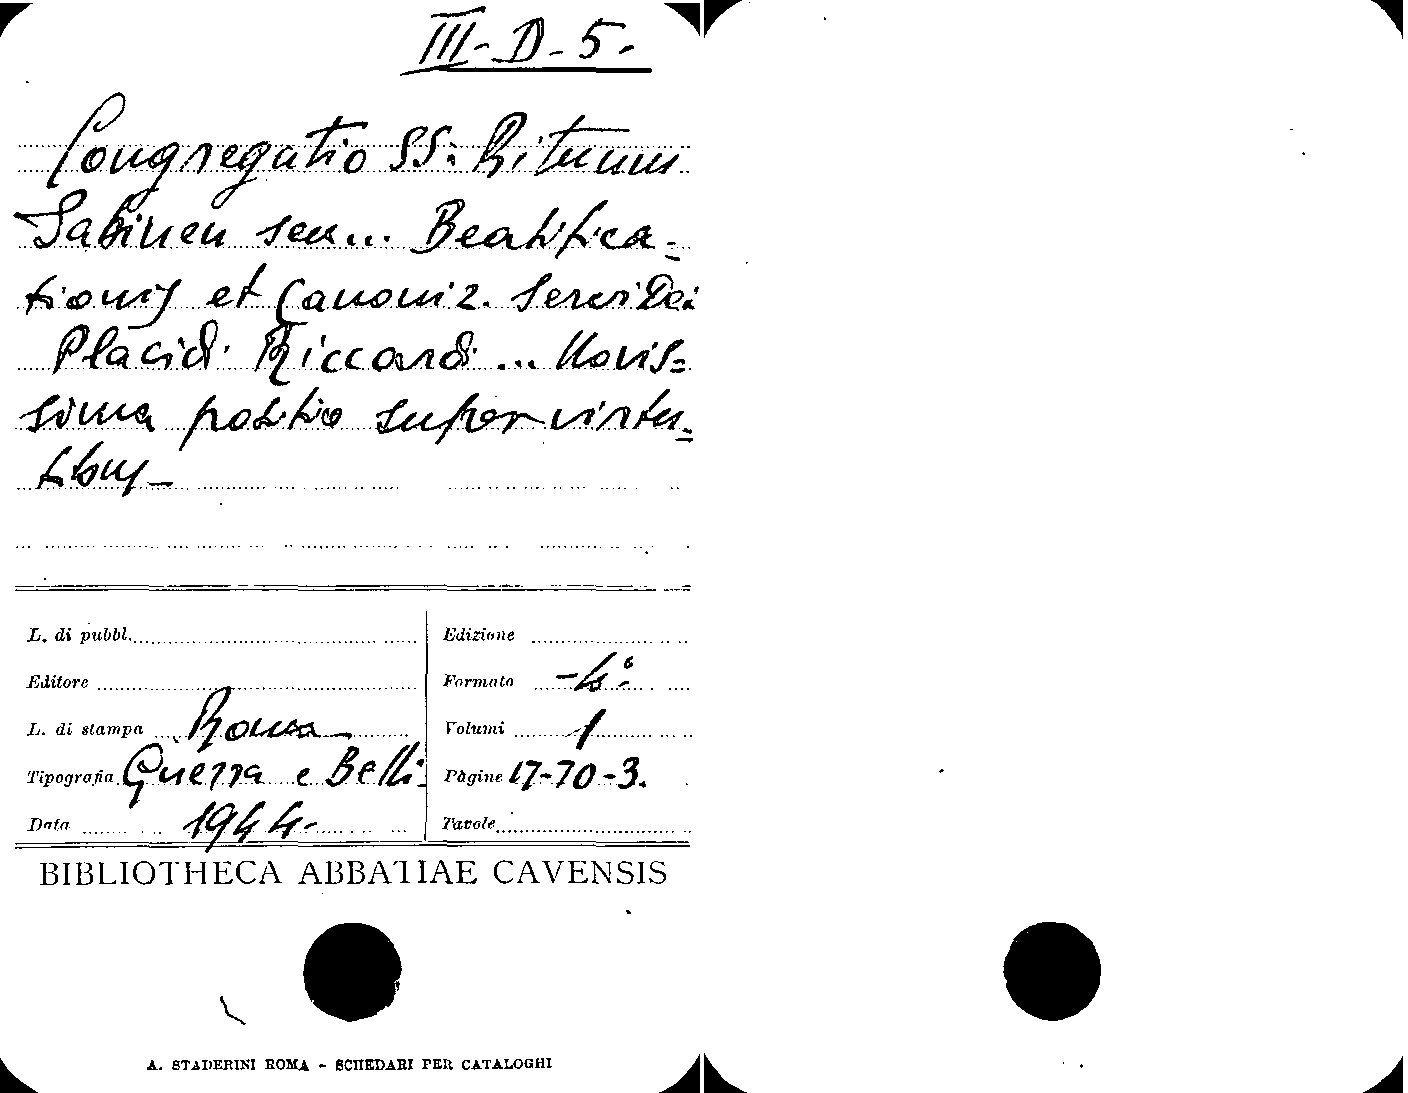 III-D-5-
Congregatio SS: Rituum
Sabinen seu... Beatifica=
tionis et Canoniz. Servi Dei
Placidi Riccardi... Novis=
sima positio super virtu=
tibus-
L. di pubbl.
Edizione
Editore
Formato -4°-
L. di stampa Roma
Volumi 1
Tipografia Guerra e Belli
Pàgine 17-70-3.
Data 1944-
Tavole
BIBLIOTHECA ABBATIAE CAVENSIS
A. STADERINI ROMA - SCHEDARI PER CATALOGHI